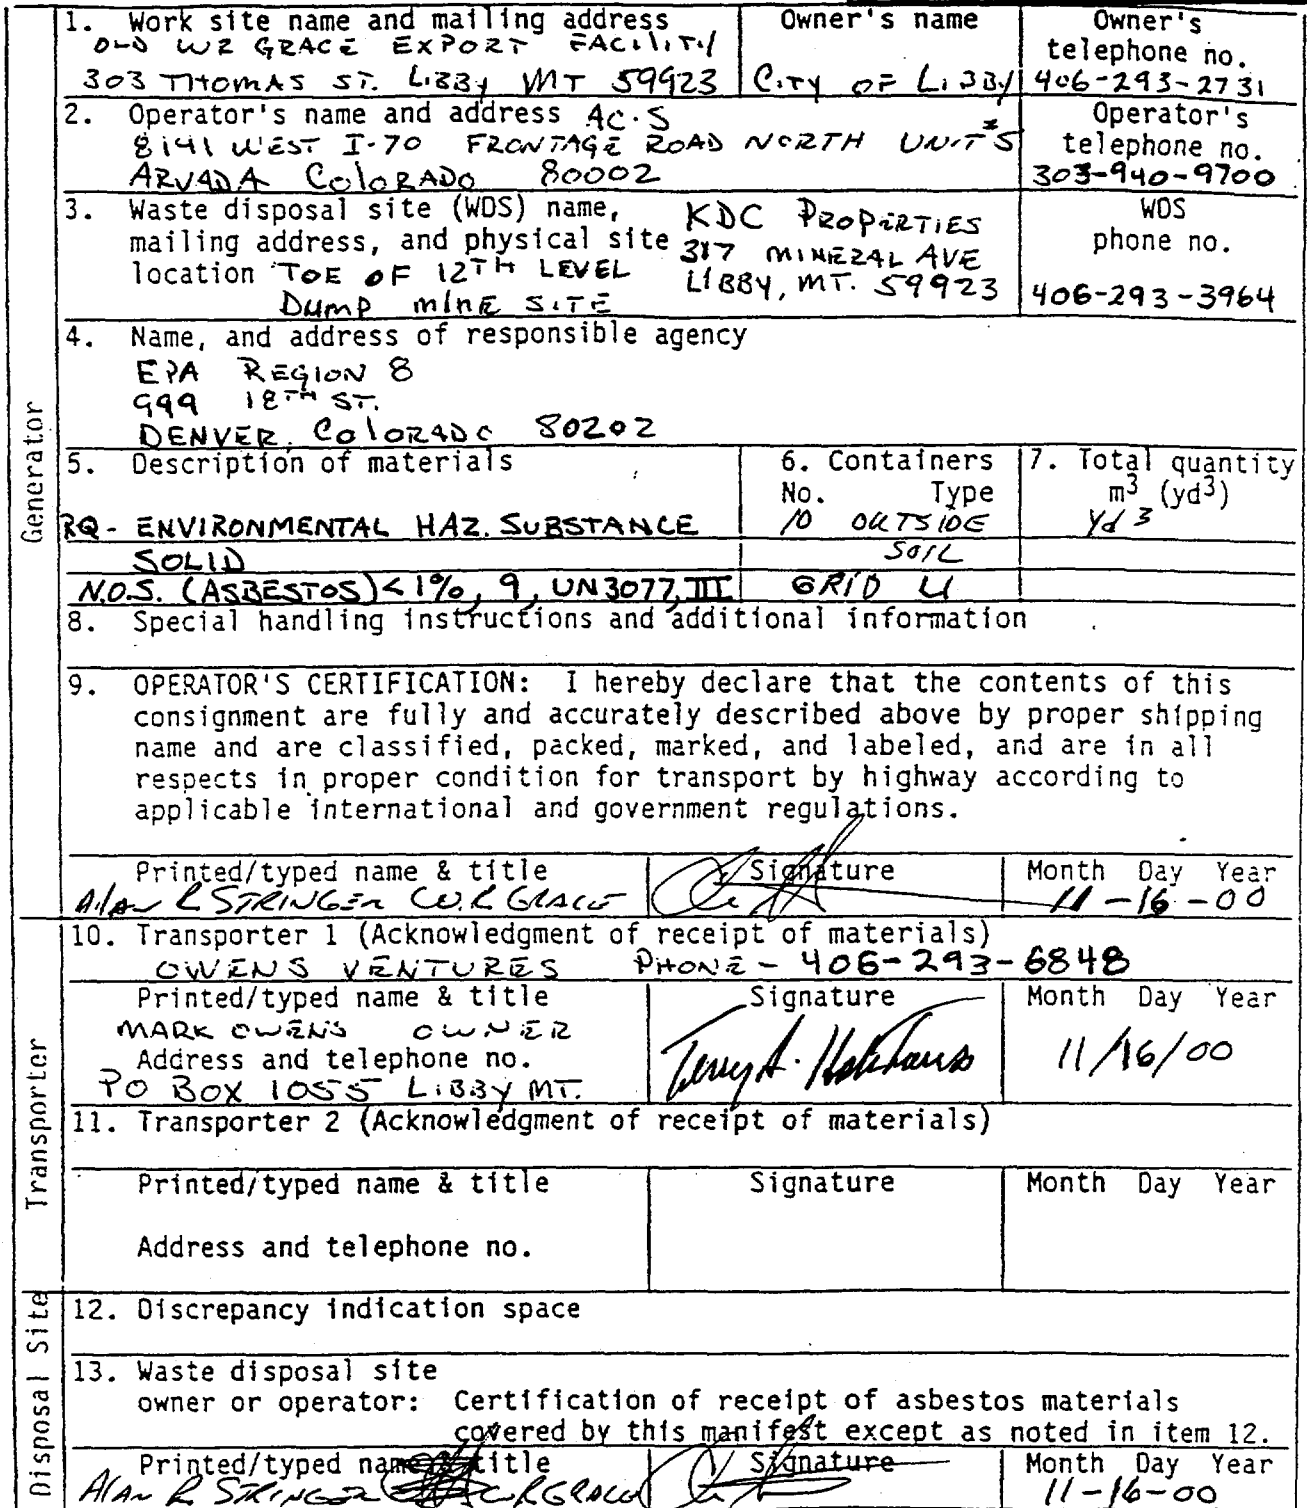 1. Work site name and mailing address
OLD WR GRACE EXPORT FACILITY
303 THOMAS ST. LIBBY MT 59923
Owner's name
CITY OF LIBBY
Owner's
telephone no.
406-293-2731
2. Operator's name and address AC·S
8141 WEST I-70 FRONTAGE ROAD NORTH UNIT #5
ARVADA COLORADO 80002
Operator's
telephone no.
303-940-9700
3. Waste disposal site (WDS) name, KDC PROPERTIES
mailing address, and physical site 317 MINERAL AVE
location TOE OF 12TH LEVEL LIBBY, MT. 59923
DUMP MINE SITE
WDS
phone no.
406-293-3964
4. Name, and address of responsible agency
EPA REGION 8
999 18TH ST.
DENVER, COLORADO 80202
5. Description of materials
RQ - ENVIRONMENTAL HAZ. SUBSTANCE
SOLID
N.O.S. (ASBESTOS) <1%, 9, UN3077, III
6. Containers
No. Type
10 OUTSIDE
SOIL
GRID U
7. Total quantity
m3 (yd3)
Yd 3
8. Special handling instructions and additional information
9. OPERATOR'S CERTIFICATION: I hereby declare that the contents of this
consignment are fully and accurately described above by proper shipping
name and are classified, packed, marked, and labeled, and are in all
respects in proper condition for transport by highway according to
applicable international and government regulations.
Printed/typed name & title
Alan R STRINGER W.R GRACE
Signature
Month Day Year
11-16-00
Generator
10. Transporter 1 (Acknowledgment of receipt of materials)
OWENS VENTURES PHONE - 406-293-6848
Printed/typed name & title
MARK OWENS OWNER
Address and telephone no.
PO BOX 1055 LIBBY MT.
Signature
Month Day Year
11/16/00
11. Transporter 2 (Acknowledgment of receipt of materials)
Printed/typed name & title
Address and telephone no.
Signature
Month Day Year
Transporter
12. Discrepancy indication space
13. Waste disposal site
owner or operator: Certification of receipt of asbestos materials
covered by this manifest except as noted in item 12.
Printed/typed name & title
Alan R STRINGER W.R GRACE
Signature
Month Day Year
11-16-00
Disposal Site